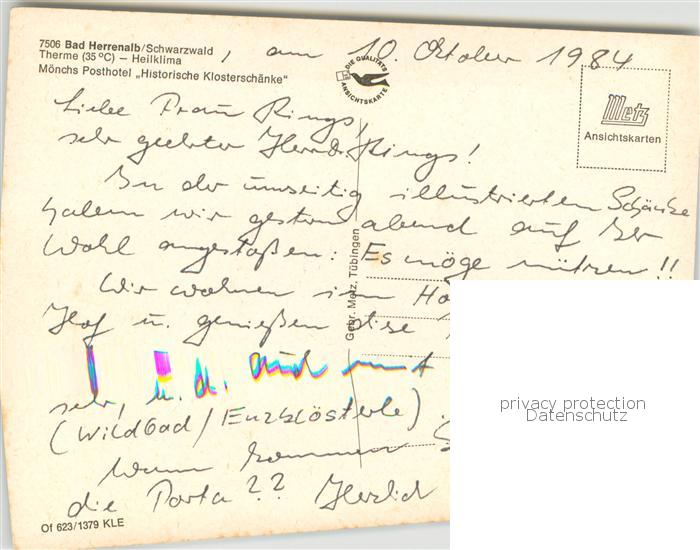 7506 Bad Herrenalb/Schwarzwald
Therme (35 °C) — Heilklima
Mönchs Posthotel „Historische Klosterschänke"
, am 10. Oktober 1984
DIE QUALITÄTS
ANSICHTSKARTE
Metz
Ansichtskarten
Liebe Frau Rings,
sehr geehrter Herr Dr. Rings!
In der umseitig illustrierten Schänke
haben wir gestern abend auf Ihr
Wohl angestoßen: Es möge nützen!!
Wir wohnen im
Hof u. genießen diese
u. a. auch mit
sehr,
(Wildbad/Enzklösterle).
Wann kommen S
die Porta?? Herzlich
Gebr. Metz, Tübingen
Of 623/1379 KLE
privacy protection
Datenschutz